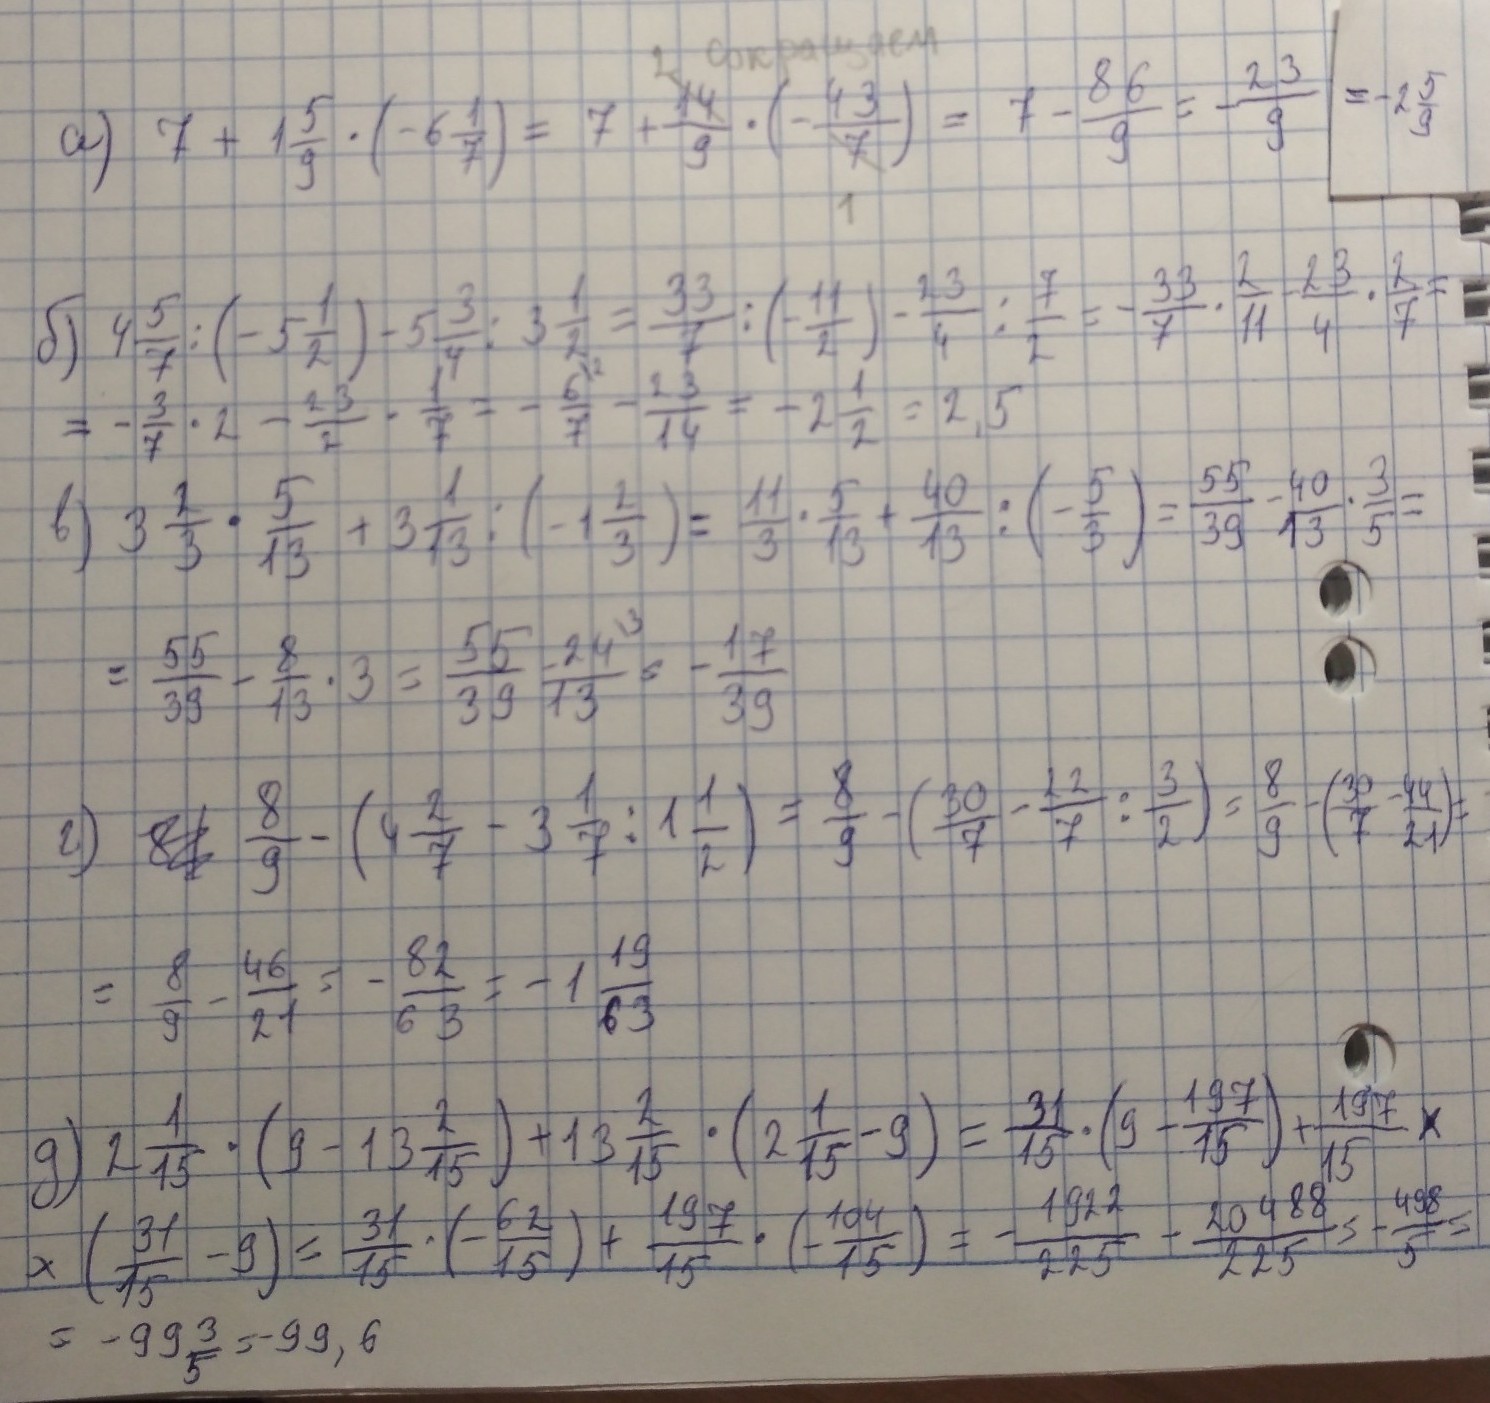 2 сокращаем
а) 7 + 1 5/9 · (-6 1/7) = 7 + 14/9 · (-43/7) = 7 - 86/9 = -23/9 = -2 5/9
1
б) 4 5/7 : (-5 1/2) - 5 3/4 : 3 1/2 = 33/7 : (-11/2) - 23/4 : 7/2 = -33/7 · 2/11 - 23/4 · 2/7 =
= -3/7 · 2 - 23/2 · 1/7 = -6/7 ^2 - 23/14 = -2 1/2 = 2,5
в) 3 2/3 · 5/13 + 3 1/13 : (-1 2/3) = 11/3 · 5/13 + 40/13 : (-5/3) = 55/39 - 40/13 · 3/5 =
= 55/39 - 8/13 · 3 = 55/39 - 24/13 ^3 = -17/39
г) 8/9 - (4 2/7 - 3 1/7 : 1 1/2) = 8/9 - (30/7 - 22/7 : 3/2) = 8/9 - (30/7 - 44/21) =
= 8/9 - 46/21 = -82/63 = -1 19/63
д) 2 1/15 · (9 - 13 2/15) + 13 2/15 · (2 1/15 - 9) = 31/15 · (9 - 197/15) + 197/15 ×
× (31/15 - 9) = 31/15 · (-62/15) + 197/15 · (-104/15) = -1922/225 - 20488/225 = -498/5 =
= -99 3/5 = -99,6